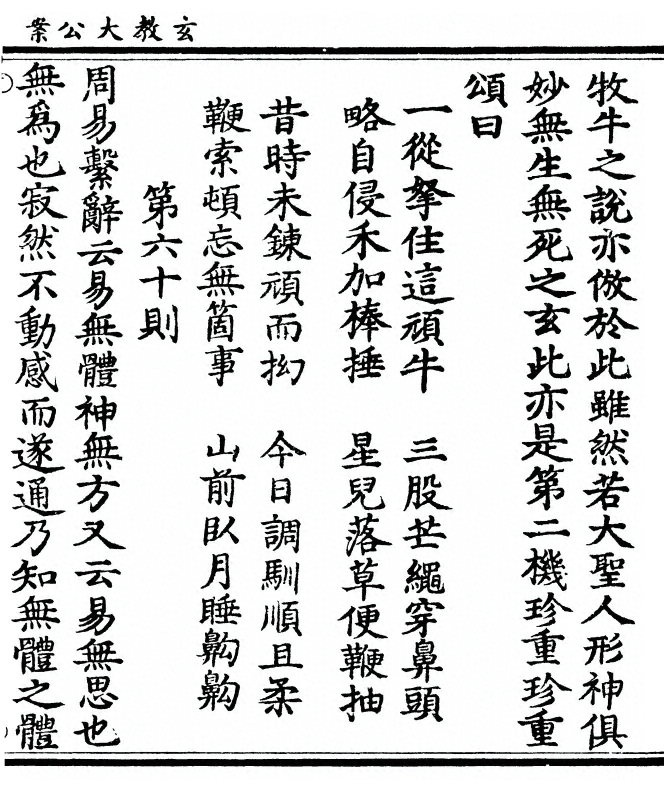 玄教大公案
牧牛之說亦倣於此雖然若大聖人形神俱
妙無生無死之玄此亦是第二機珍重珍重
頌曰
一從拏住這頑牛 三股芒繩穿鼻頭
略自侵禾加棒捶 星兒落草便鞭抽
昔時未鍊頑而拗 今日調馴順且柔
鞭索頓忘無箇事 山前臥月睡齁齁
第六十則
周易繫辭云易無體神無方又云易無思也
無爲也寂然不動感而遂通乃知無體之體